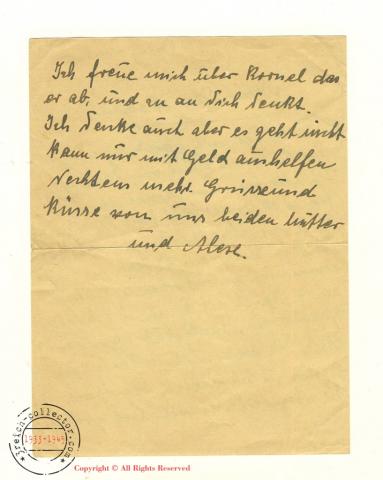 Ich freue mich über Kornel das
er ab und zu an Dich denkt.
Ich denke auch aber es geht nicht
kann nur mit Geld aushelfen
mehr. Grüsse und
Küsse von uns beiden Mutter
und
3reich-collector.com
1933-1945
Copyright © All Rights Reserved